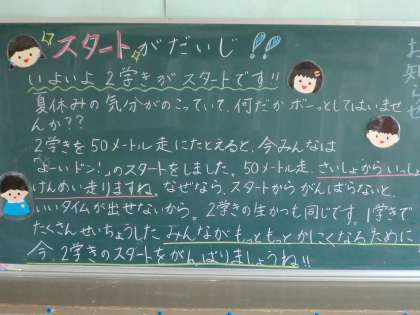 スタートがだいじ!!
いよいよ2学きがスタートです!!
夏休みの気分がのこっていて、何だかボーっとしてはいませ
んか??
2学きを50メートル走にたとえると、今みんなは
「よーいドン!」のスタートをしました。50メートル走、さいしょからいっし
ょけんめい走りますね。なぜなら、スタートからがんばらないと、
いいタイムが出せないから。2学きの生かつも同じです。1学きで
たくさんせいちょうしたみんながもっともっとかしこくなるために
今、2学きのスタートをがんばりましょうね!!
お知らせ